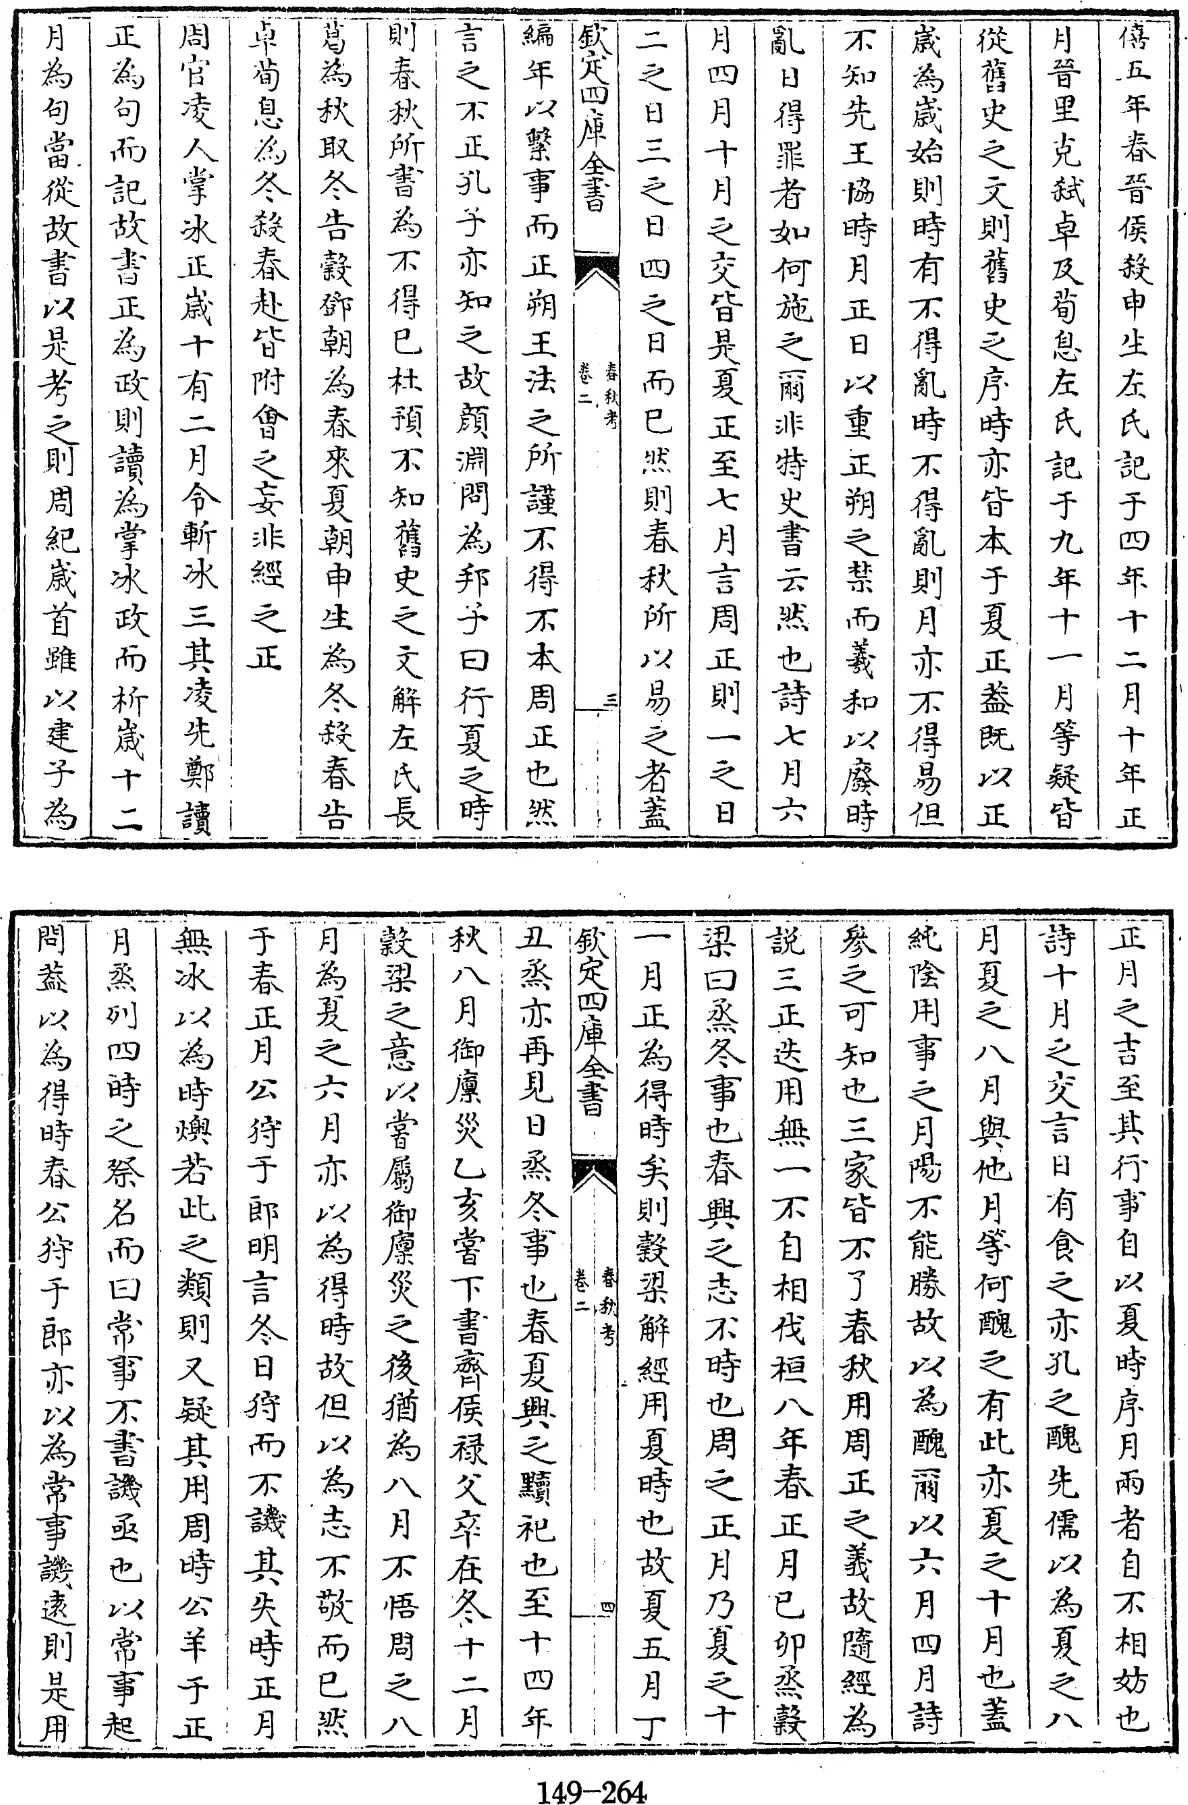 僖五年春晉侯殺申生左氏記于四年十二月十年正
月晉里克弑卓及荀息左氏記于九年十一月等疑皆
從舊史之文則舊史之序時亦皆本于夏正葢既以正
嵗為嵗始則時有不得亂時不得亂則月亦不得易但
不知先王協時月正日以重正朔之禁而羲和以廢時
亂日得罪者如何施之爾非特史書云然也詩七月六
月四月十月之交皆是夏正至七月言周正則一之日
二之日三之日四之日而已然則春秋所以易之者葢
欽定四庫全書
春秋考
卷二
三
編年以繫事而正朔王法之所謹不得不本周正也然
言之不正孔子亦知之故顔淵問為邦子曰行夏之時
則春秋所書為不得已杜預不知舊史之文解左氏長
葛為秋取冬告穀鄧朝為春來夏朝申生為冬殺春告
卓荀息為冬殺春赴皆附會之妄非經之正
周官凌人掌冰正嵗十有二月令斬冰三其凌先鄭讀
正為句而記故書正為政則讀為掌冰政而析嵗十二
月為句當從故書以是考之則周紀嵗首雖以建子為
正月之吉至其行事自以夏時序月兩者自不相妨也
詩十月之交言日有食之亦孔之醜先儒以為夏之八
月夏之八月與他月等何醜之有此亦夏之十月也葢
純陰用事之月陽不能勝故以為醜爾以六月四月詩
參之可知也三家皆不了春秋用周正之義故隨經為
説三正迭用無一不自相伐桓八年春正月己卯烝穀
梁曰烝冬事也春興之志不時也周之正月乃夏之十
一月正為得時矣則穀梁解經用夏時也故夏五月丁
欽定四庫全書
春秋考
卷二
四
丑烝亦再見曰烝冬事也春夏興之黷祀也至十四年
秋八月御廪災乙亥嘗下書齊侯禄父卒在冬十二月
穀梁之意以嘗屬御廪災之後猶為八月不悟周之八
月為夏之六月亦以為得時故但以為志不敬而已然
于春正月公狩于郎明言冬日狩而不譏其失時正月
無冰以為時燠若此之類則又疑其用周時公羊于正
月烝列四時之祭名而曰常事不書譏亟也以常事起
問葢以為得時春公狩于郎亦以為常事譏逺則是用
149-264